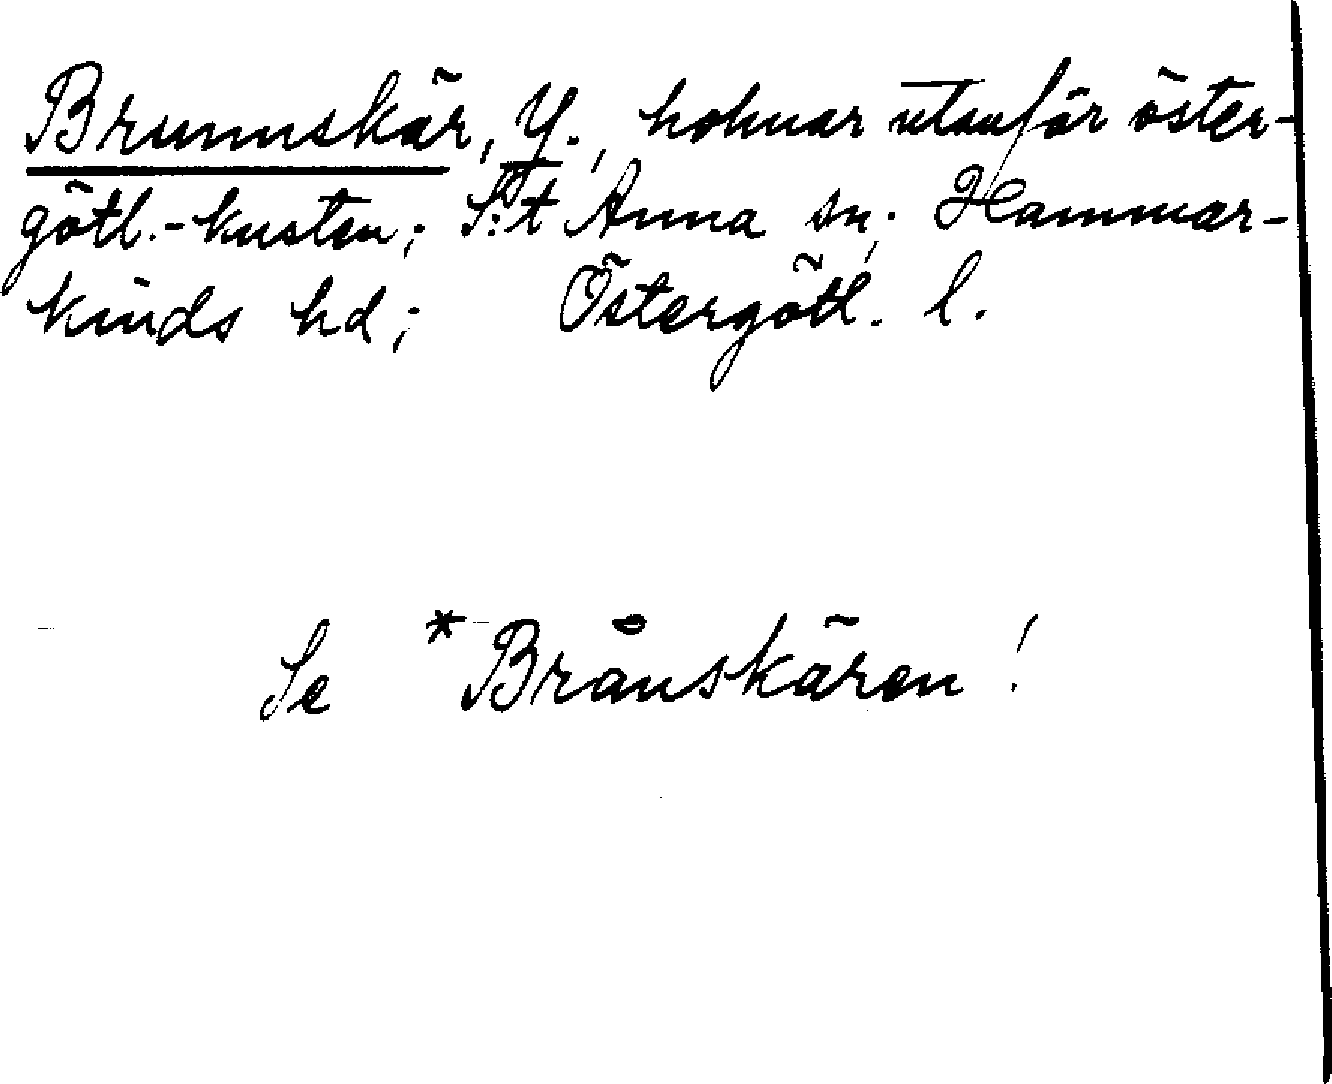 Brunnskär, Y., holmar utanför öster-
götl.-kusten; S:t Anna sn; Hammar-
kinds hd; Östergötl. l.
Se *Brånskären!